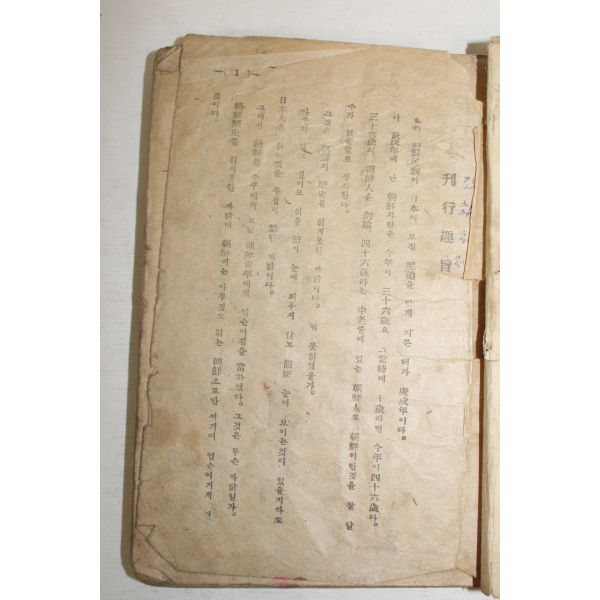 刊行趣旨
우리 朝鮮民族이 日本의 모진 壓迫을 받게 되든 때가 庚戌年이다。
이 庚戌年에 난 朝鮮사람은 今年이 三十六歲요 그 當時에 十歲라면 今年이 四十六歲다。
三十六歲의 朝鮮人은 勿論、四十六歲라는 中老줄에 있는 朝鮮人도 朝鮮이란것을 잘 알
수가 없을줄로 생각한다。
그것은 朝鮮의 歷史를 읽지못한 까닭이다。 왜 못읽었을가。
아무리 읽고 싶어도 읽을 冊이 눈에 띄우지 않고 눈에 보이는것이 있을지라도
日本人은 읽는것을 禁한 까닭이다。
그래서 朝鮮을 朝鮮青年에게 업슨여김을 當하였다。 그것은 무슨 까닭일가。
朝鮮歷史를 읽지못한 까닭에 朝鮮에는 아무것도 없는 朝鮮으로만 여기어 업슨여기게 된
것이다。
—( 1 )—